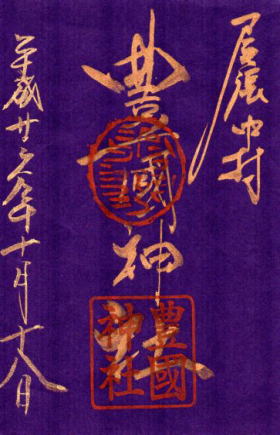 尾張中村
豊國神社
平成廿六年十月十八日
豊國
神社